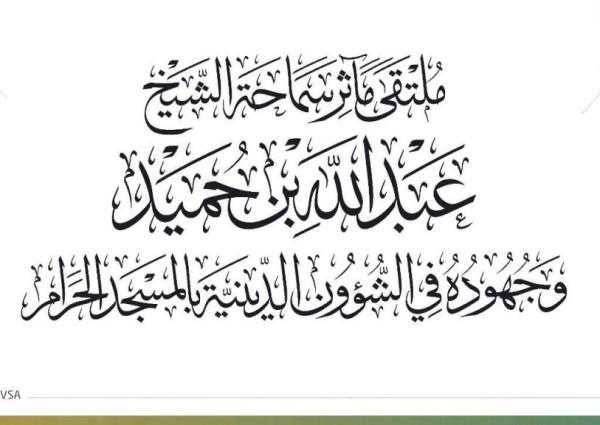 مُلتَقَى مَآثِر سَمَاحَة الشَّيْخ
عَبْد اللَّه بْن حُمَيْد
وَجُهُودُهُ فِي الشُّؤُون الدِّينِيَّة بِالمَسْجِد الحَرَام
VSA